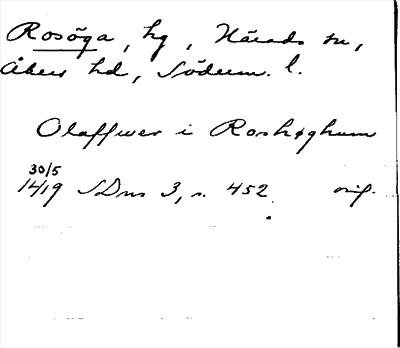 Rosöga, hg, Härads sn,
Åkers hd, Söderm. l.
Olaffwer i Roshøghum
30/5
1419 SDns 3, s. 452. orig.